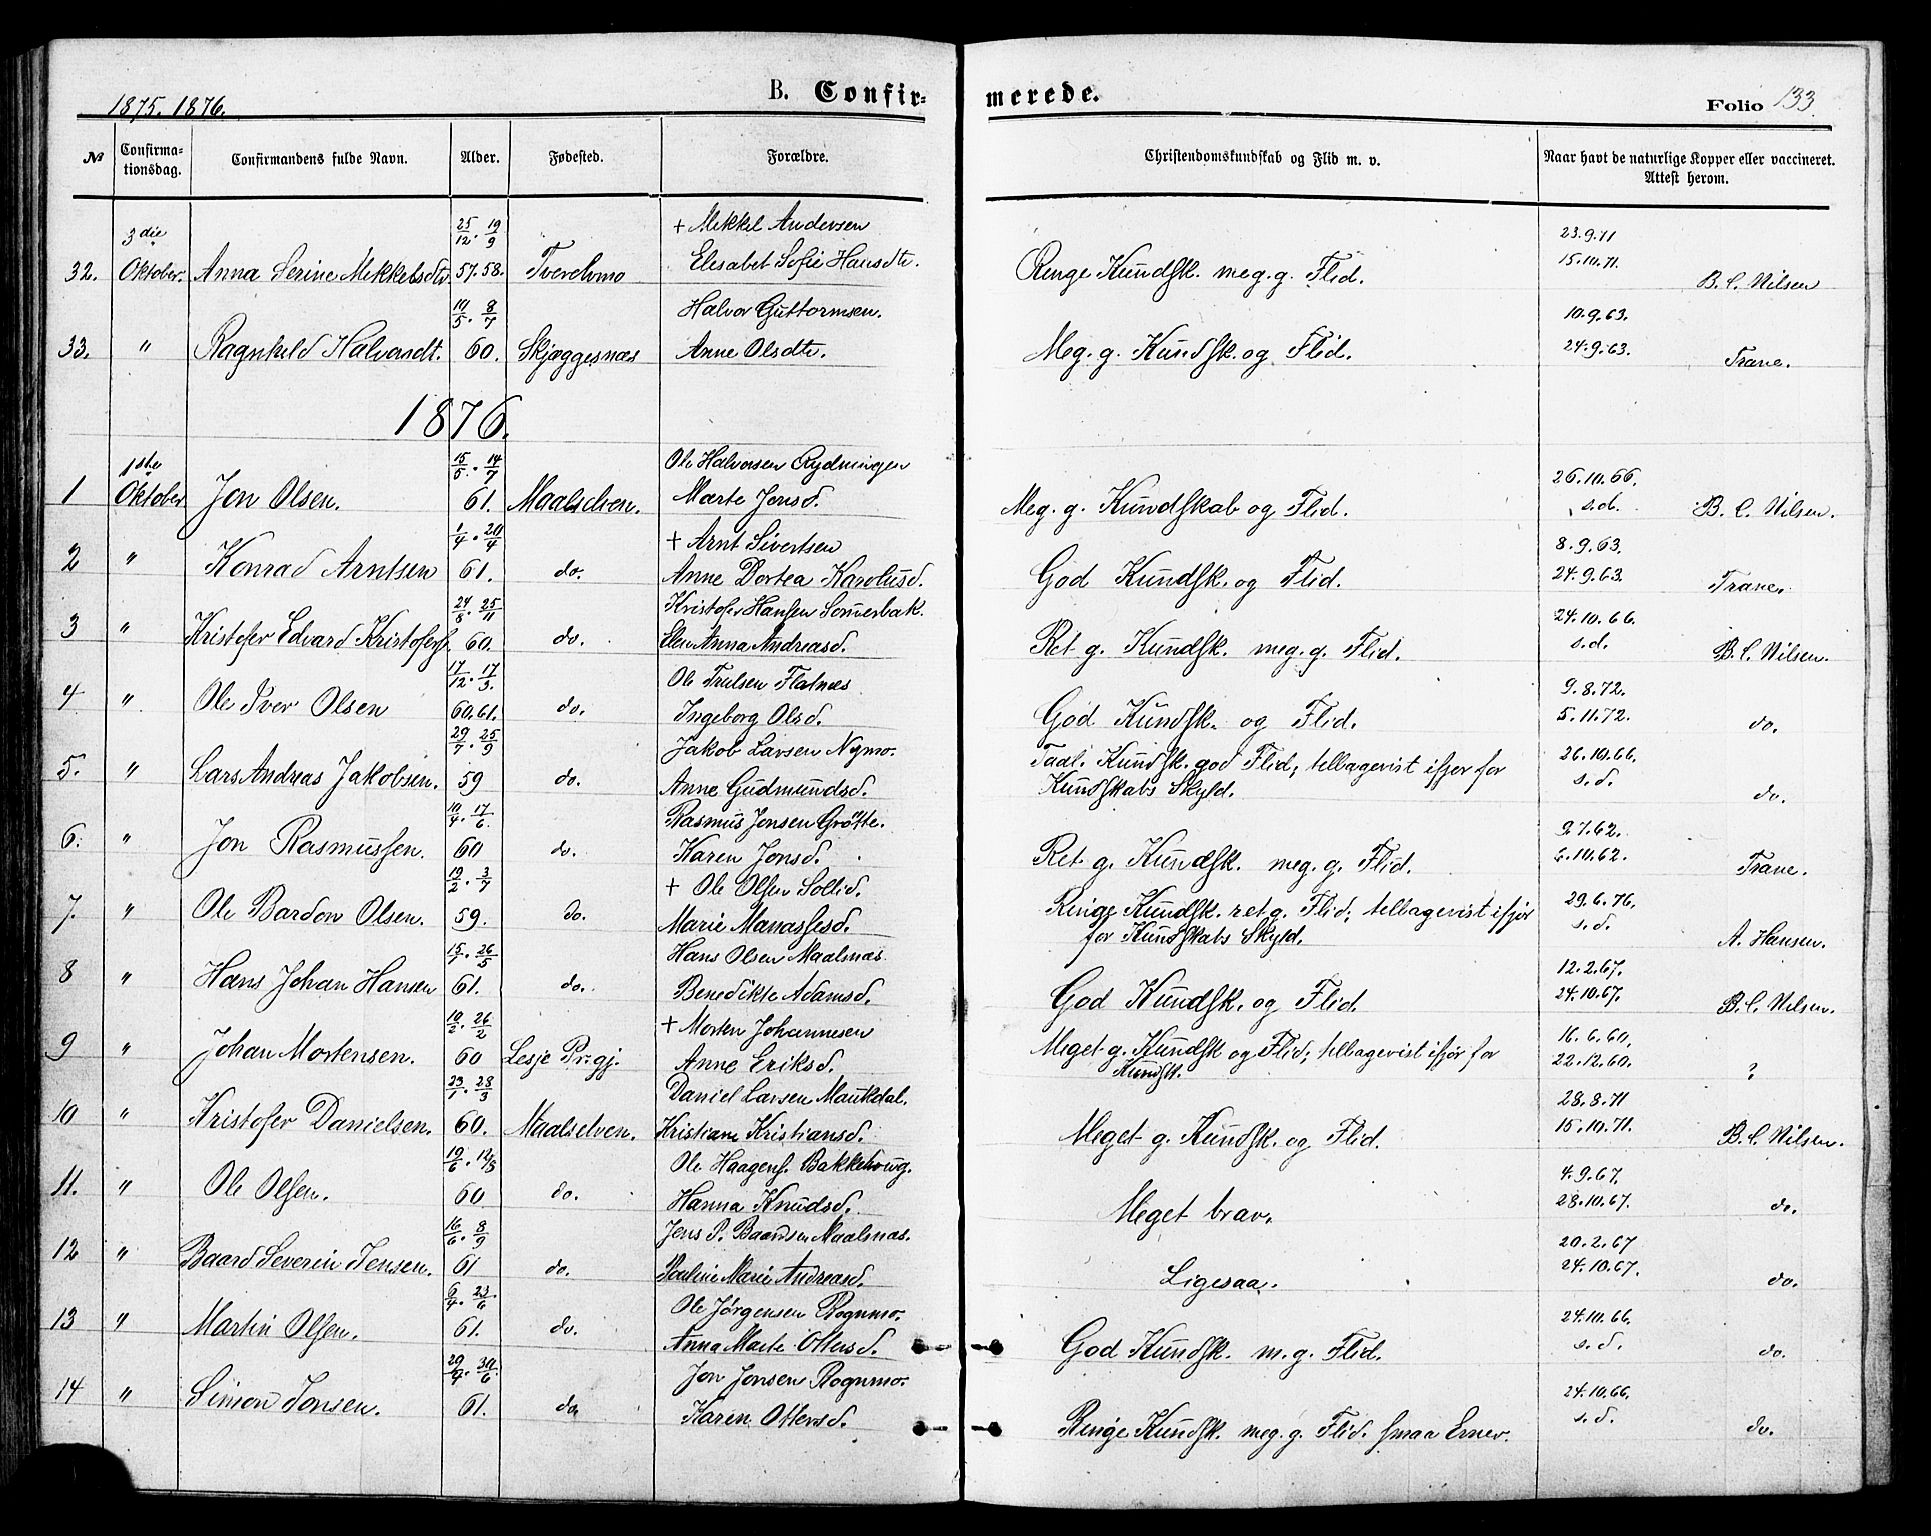 1875. 1876.
B. Confir-
merede.
Folio 133
№
Confirma-
tionsdag.
Confirmandens fulde Navn.
Alder.
Fødested.
Forældre.
Christendomskundskab og Flid m. v.
Naar havt de naturlige Kopper eller vaccineret.
Attest herom.
3die 25/12. 19/9 + Mekkel Andersen 23.9.71
32. Oktober. Anna Serine Mekkelsdtr. 57.58. Tverelvmo Elesabet Sofie Hansdtr. Renge Kundsk. meg. g. Flid. 15.10.71. B. C. Nilsen
10/5. 8/7 Halvor Guttormsen. 10.9.63.
33. " Ragnhild Halvorsdt. 60. Skjæggesnæs Anne Olsdtr. Meg. g. Kundsk. og Flid. 24.9.63. Trane.
1876.
1ste 15/5. 14/7 Ole Halvorsen Rydningen 26.10.66.
1 Oktober Jon Olsen. 61. Maalselven. Marte Jonsd. Meg. g. Kundskab og Flid. s.d. B. C. Nilsen.
1/4. 20/4 + Arnt Sivertsen 8.9.63.
2 " Konrad Arntsen 61. do. Anne Dortea Karolusd. God Kundsk. og Flid. 24.9.63. Trane.
24/8. 25/11 Kristofer Hansen Somerbak. 24.10.66.
3 " Kristofer Edvard Kristofers. 60. do. Elen Anna Andreasd. Ret g. Kundsk. meg. g. Flid. s.d. B. C. Nilsen.
17/12. 17/3. Ole Trulsen Flatnæs 9.8.72.
4 " Ole Iver Olsen 60.61. do. Ingeborg Olsd. God Kundsk. og Flid. 5.11.72. do.
29/7. 25/9 Jakob Larsen Nymo. Taal. Kundsk. god Flid; telbagevist ifjor for 26.10.66.
5. " Lars Andreas Jakobsen. 59 do. Anne Gudmundsd. Kundskabs Skyld. s.d. do.
10/4. 17/6. Rasmus Jonsen Grøtte. 9.7.62.
6. " Jon Rasmussen. 60 do. Karen Jonsd. Ret g. Kundsk. meg. g. Flid. 6.10.62. Trane.
19/2. 3/7 + Ole Olsen Sollid. Renge Kundsk. ret g. Flid; telbagevist ifjor 29.6.76.
7. " Ole Bardon Olsen. 59. do. Marie Manassesd. for Kundskabs Skyld. s.d. A. Hansen.
15/7. 26/5 Hans Olsen Maalsnæs 12.2.67.
8 " Hans Johan Hansen 61. do. Benedikte Adamsd. God Kundsk. og Flid. 24.10.67. B. C. Nilsen.
19/2. 26/2 + Morten Johannesen Meget g. Kundsk og Flid; telbagevist ifjør for 16.6.60,
9 " Johan Mortensen. 60 Lesje Prgj. Anne Eriksd. Kundsk. 22.12.60. ?
23/1. 28/3 Daniel Larsen Maukdal. 28.8.71
10 " Kristofer Danielsen. 60. Maalselven. Kristiane Kristiansd. Meget g. Kundsk. og Flid. 15.10.71. B. C. Nilsen.
19/6. 12/8 Ole Haagens. Bakkehoug. 4.9.67.
11. " Ole Olsen. 60 do. Hanna Knudsd. Meget brav. 28.10.67. do.
16/6. 8/9 Jens P. Baardsen Maalsnæs. 20.2.67
12 " Baard Severin Jensen. 61 do. Pauline Marie Andreasd. Ligesaa. 24.10.67. do.
6/4. 23/6. Ole Jørgensen Rognmo. 24.10.66.
13 " Martin Olsen. 61. do. Anna Marte Ottersd. God Kundsk. m. g. Flid. s.d. do.
Jon Jonsen Rognmo. 24.10.66.
14 " Simon Jonsen. 61. do Karen Ottersd. Renge Kundsk. meg. g. Flid. smaa Evner. s.d. do.